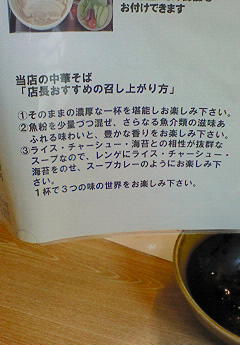 お付けできます
当店の中華そば
「店長おすすめの召し上がり方」
①そのままの濃厚な一杯を堪能しお楽しみ下さい。
②魚粉を少量づつ混ぜ、さらなる魚介類の滋味あ
ふれる味わいと、豊かな香りをお楽しみ下さい。
③ライス・チャーシュー・海苔との相性が抜群な
スープなので、レンゲにライス・チャーシュー・
海苔をのせ、スープカレーのようにお楽しみ下
さい。
１杯で３つの味の世界をお楽しみ下さい。